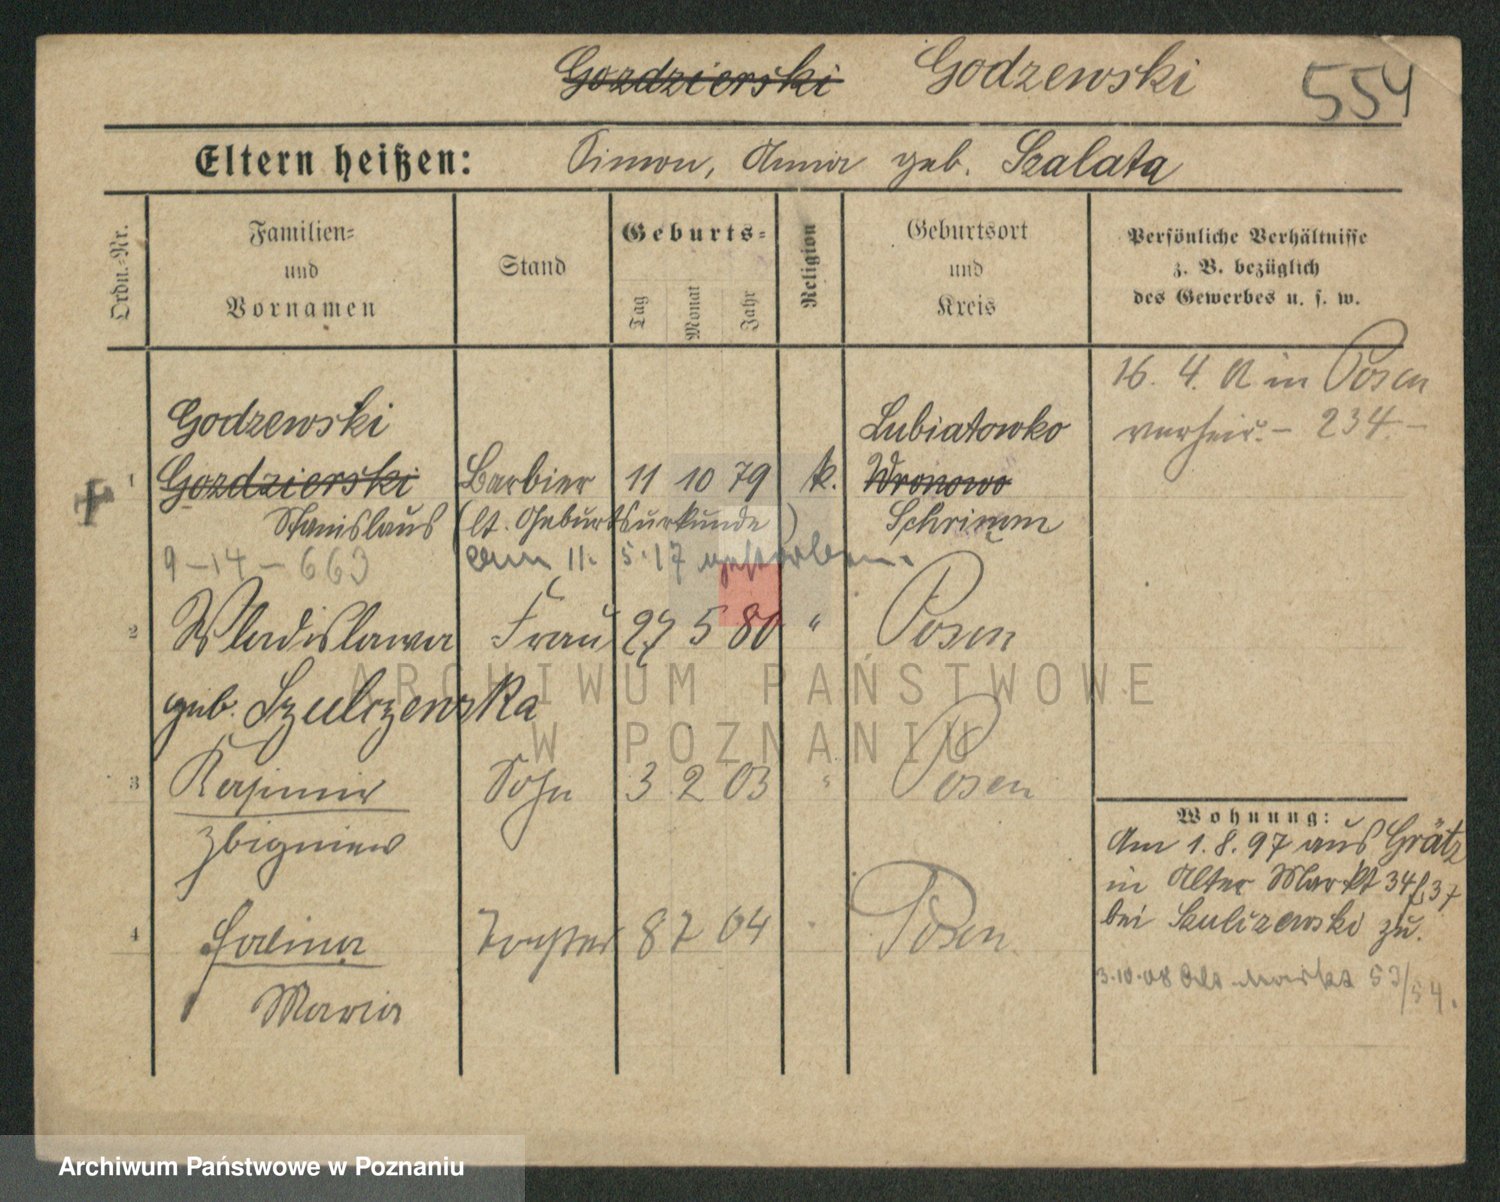 Gozdzierski Godzewski 554
Eltern heißen: Simon, Anna geb. Szalata
Ordn.-Nr.
Familien-
und
Vornamen
Stand
Geburts-
Tag
Monat
Jahr
Religion
Geburtsort
und
Kreis
Persönliche Verhältnisse
z. B. bezüglich
des Gewerbes u. s. w.
16. 4. in Posen
verheir. - 234 -
Godzewski Lubiatowko
1 Gozdzierski Barbier 11 10 79 k. Wronowo
Stanislaus (lt. Geburtsurkunde) Schrimm
9-14-663 am 11. 5. 17 gestorben.
2 Wladislawa Frau 27 5 80 " Posen
geb. Szulczewska
3 Kasimir Sohn 3 2 03 " Posen
Zbigniew
4 Halina Tochter 8 7 04 Posen
Maria
Wohnung:
Am 1. 8. 97 aus Grätz
in Alter Markt 34 37
bei Szulczewski zu.
3.10.08 Alt. Markt 53/54.
ARCHIWUM PAŃSTWOWE
W POZNANIU
Archiwum Państwowe w Poznaniu